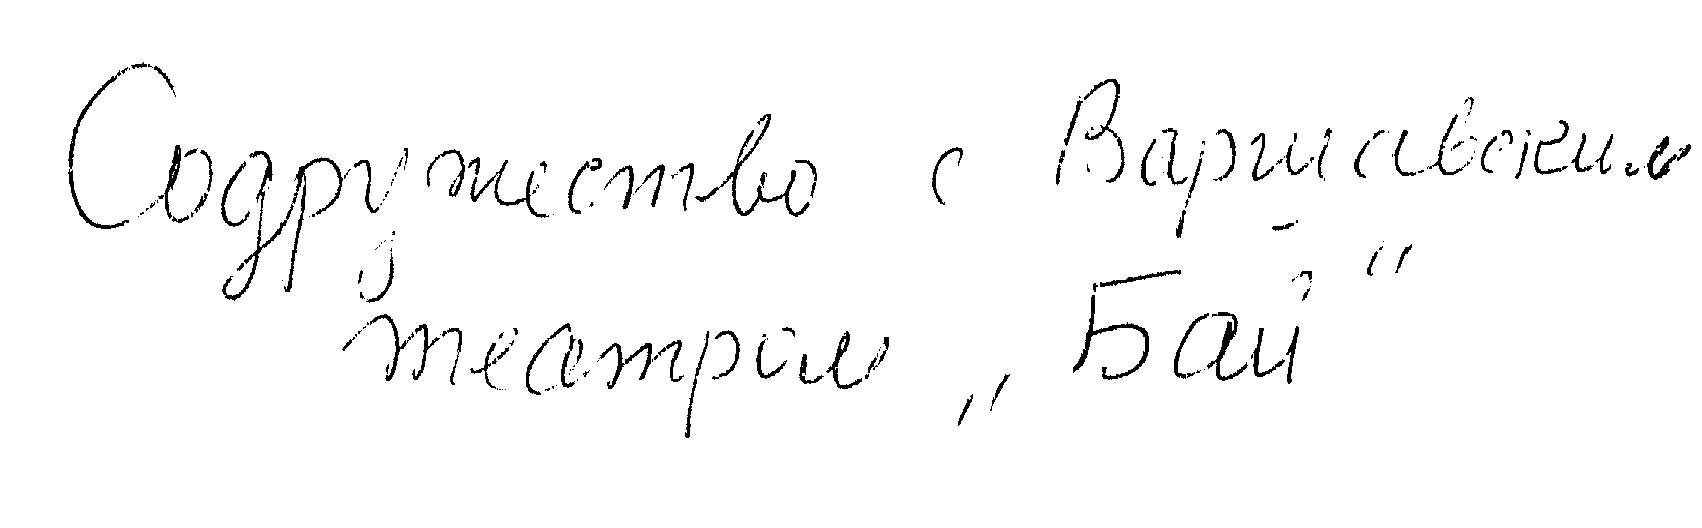 Содружество с Варшавским
театром „Бай“